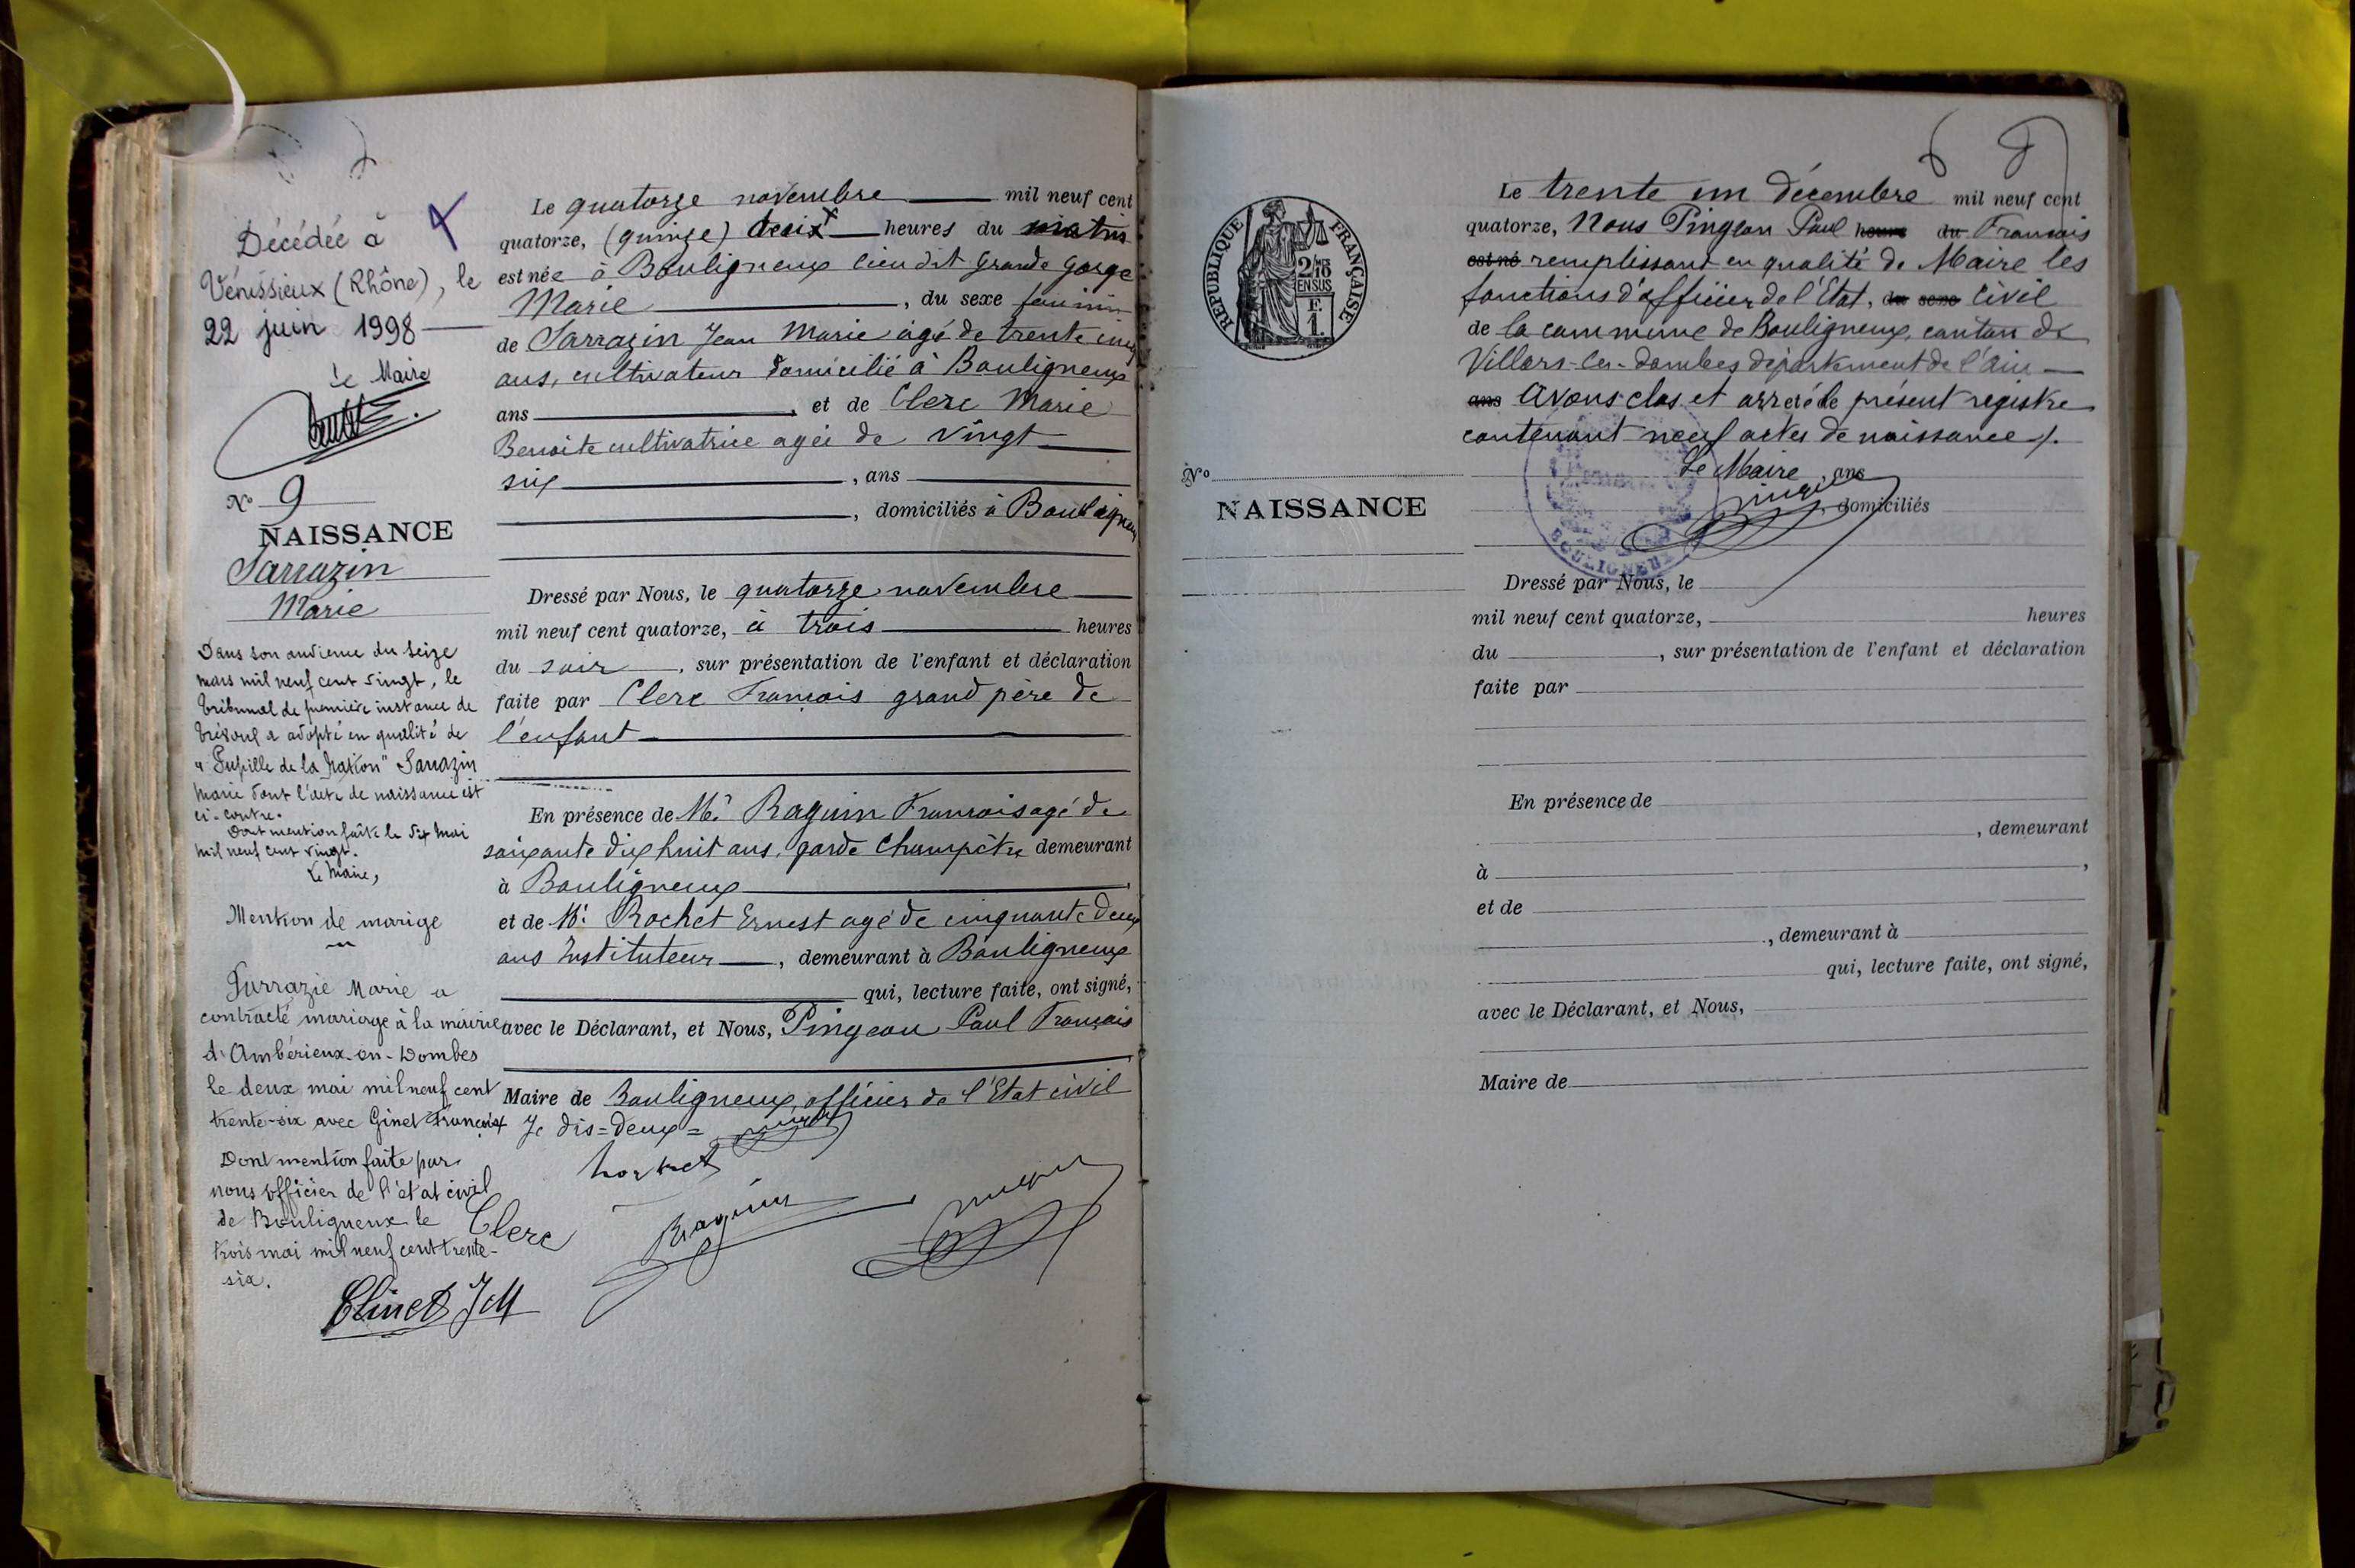 Décédée à
Vénissieux (Rhône), le
22 juin 1998
Le Maire
N° 9
NAISSANCE
Sarrazin
Marie
Dans son audience du seize
mars mil neuf cent vingt, le
Tribunal de première instance de
Trévoux a adopté en qualité de
"Pupille de la Nation" Sarrazin
Marie dont l'acte de naissance est
ci-contre.
Dont mention faite le six mai
mil neuf cent vingt.
Le Maire,
Mention de marige
Sarrazie Marie a
contracté mariage à la mairie
d'Ambérieux-en-Dombes
le deux mai mil neuf cent
trente-six avec Ginet François
Dont mention faite par
nous officier de l'état civil
de Bouligneux le
trois mai mil neuf cent trente-
six.
Le quatorze novembre mil neuf cent
quatorze, (quinze) heures du matin
est née à Bouligneux lieu dit Grande Gorge
Marie, du sexe féminin
de Sarrazin Jean Marie âgé de trente cinq
ans, cultivateur domicilié à Bouligneux
ans, et de Clerc Marie
Benoite cultivatrice agée de vingt
six, ans
, domiciliés à Bouligneux
Dressé par Nous, le quatorze novembre
mil neuf cent quatorze, à trois heures
du soir, sur présentation de l'enfant et déclaration
faite par Clerc François grand père de
l'enfant
En présence de Mr Raguin François agé de
soixante dix huit ans, garde Champêtre demeurant
à Bouligneux
et de Mr Rochet Ernest agé de cinquante deux
ans Instituteur, demeurant à Bouligneux
qui, lecture faite, ont signé,
avec le Déclarant, et Nous, Pingeon Paul François
Maire de Bouligneux, officier de l'Etat civil
Je dis = deux =
Clerc
Raguin
RÉPUBLIQUE FRANÇAISE
2/10
EN SUS
F.
1.
N°
NAISSANCE
Le trente un décembre mil neuf cent
quatorze, Nous Pingeon Paul heure du François
est né remplissant en qualité de Maire les
fonctions d'officier de l'Etat, du sexe civil
de la commune de Bouligneux, canton de
Villars-les-dombes département de l'ain
ans avons clos et arreté le présent registre
contenant neuf actes de naissance /.
Le Maire, ans
, domiciliés
BOULIGNEUX
Dressé par Nous, le
mil neuf cent quatorze, heures
du, sur présentation de l'enfant et déclaration
faite par
En présence de
, demeurant
à,
et de
, demeurant à
qui, lecture faite, ont signé,
avec le Déclarant, et Nous,
Maire de